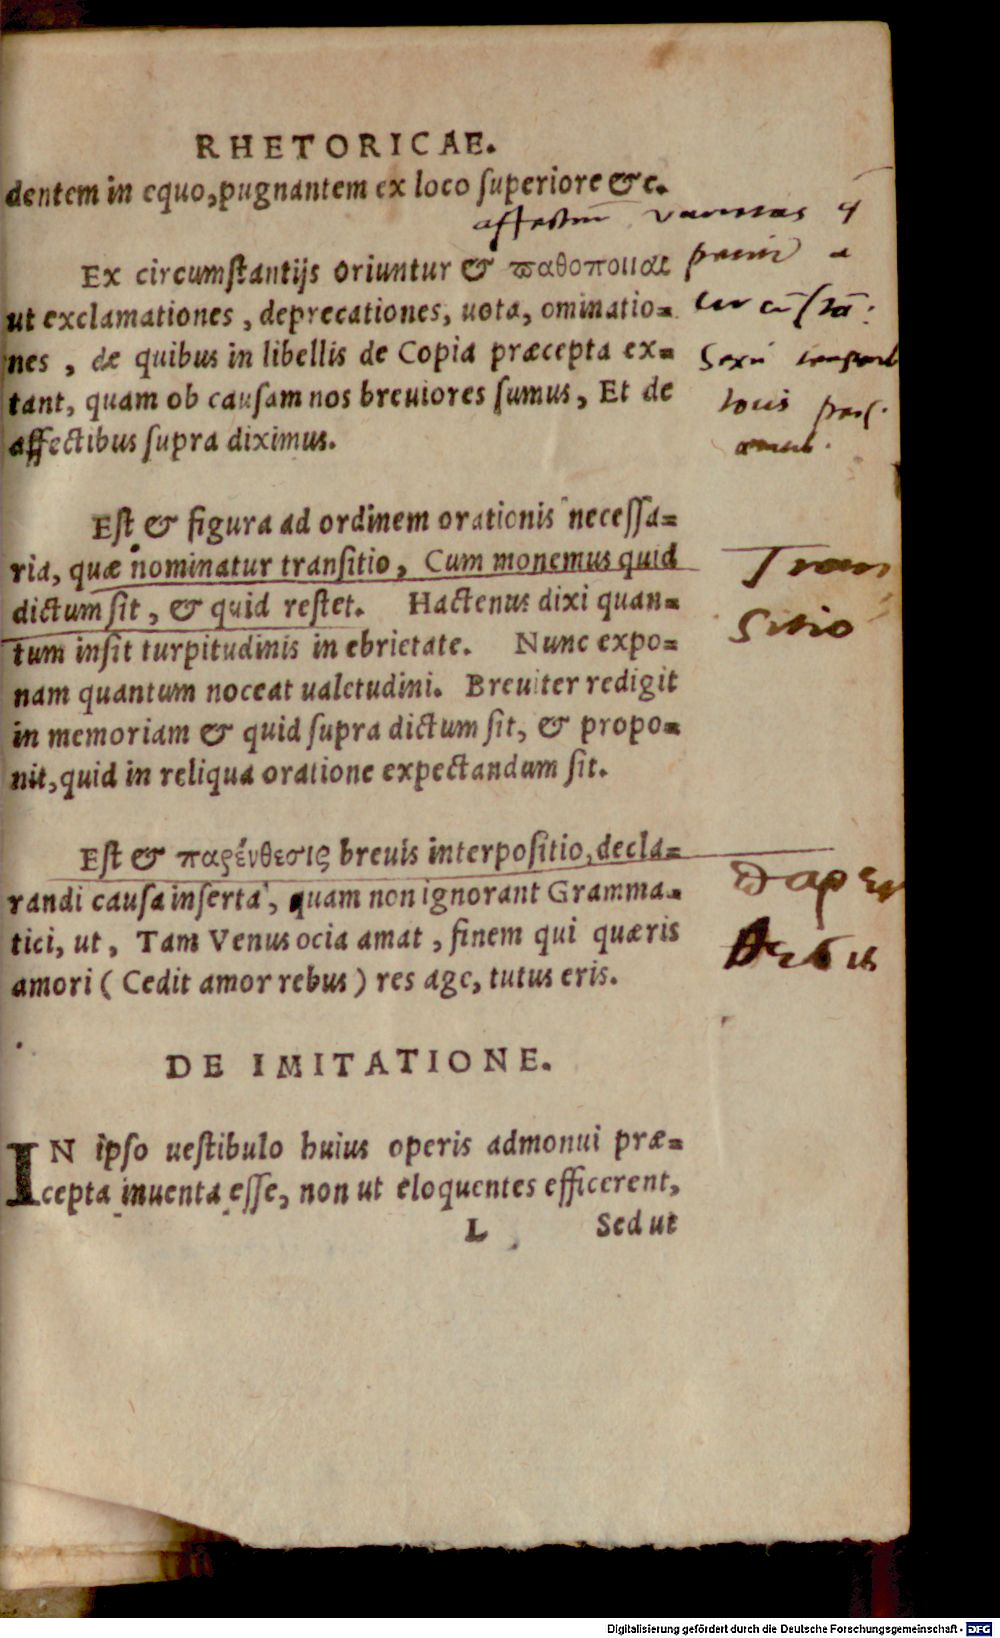 RHETORICAE.
dentem in equo, pugnantem ex loco superiore &c.
affectuum varietas
Ex circumstantijs oriuntur & παθοποιιαι
ut exclamationes, deprecationes, uota, ominatio=
nes, de quibus in libellis de Copia præcepta ex=
tant, quam ob causam nos breuiores sumus, Et de
affectibus supra diximus.
Sexu
locis
Est & figura ad ordinem orationis necessa=
ria, quæ nominatur transitio, Cum monemus quid
dictum sit, & quid restet. Hactenus dixi quan=
tum insit turpitudinis in ebrietate. Nunc expo=
nam quantum noceat ualetudini. Breuiter redigit
in memoriam & quid supra dictum sit, & propo=
nit, quid in reliqua oratione expectandum sit.
Tran
sitio
Est & παρένθεσις breuis interpositio, decla=
randi causa inserta, quam non ignorant Gramma=
tici, ut, Tam Venus ocia amat, finem qui quæris
amori (Cedit amor rebus) res age, tutus eris.
DE IMITATIONE.
IN ipso uestibulo huius operis admonui præ=
cepta inuenta esse, non ut eloquentes efficerent,
L Sed ut
Digitalisierung gefördert durch die Deutsche Forschungsgemeinschaft - DFG